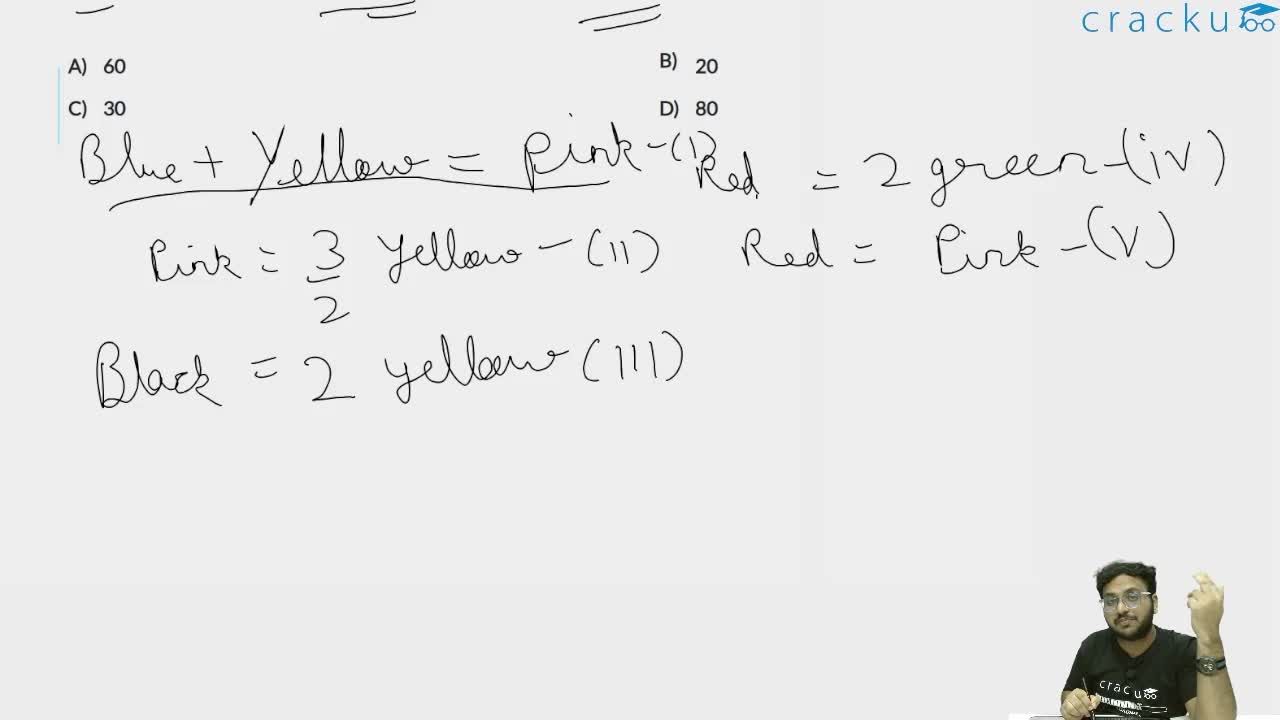 cracku
A) 60
B) 20
C) 30
D) 80
Blue + Yellow = Pink - (I)
Red = 2 green - (iv)
Pink = 3/2 Yellow - (II)
Red = Pink - (V)
Black = 2 yellow (III)
cracku